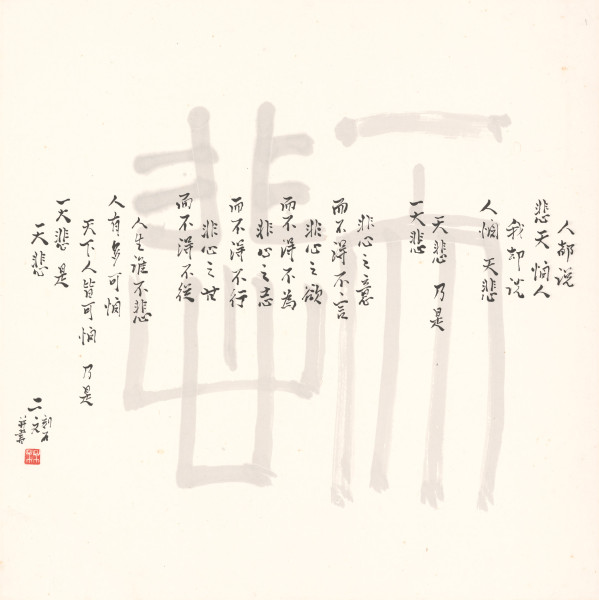 人都说
悲天悯人
我却说
人悯 天悲
天悲 乃是
一大悲
非心之意
而不得不言
非心之欲
而不得不為
非心之志
而不得不行
非心之世
而不得不從
人生谁不悲
人有多可悯
天下人皆可悯 乃是
一大悲 是
天悲
二文
刻石
并書